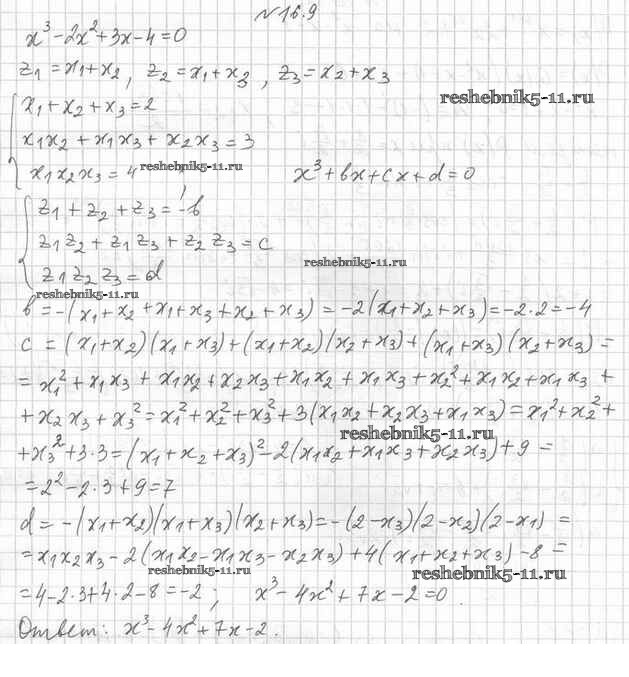 №16.9
x³-2x²+3x-4=0
z₁=x₁+x₂, z₂=x₁+x₃, z₃=x₂+x₃
reshebnik5-11.ru
x₁+x₂+x₃=2
x₁x₂+x₁x₃+x₂x₃=3
x₁x₂x₃=4 reshebnik5-11.ru x³+bx+cx+d=0
z₁+z₂+z₃=-b
z₁z₂+z₁z₃+z₂z₃=c
reshebnik5-11.ru
z₁z₂z₃=d
reshebnik5-11.ru
b=-(x₁+x₂+x₁+x₃+x₂+x₃)=-2(x₁+x₂+x₃)=-2·2=-4
c=(x₁+x₂)(x₁+x₃)+(x₁+x₂)(x₂+x₃)+(x₁+x₃)(x₂+x₃)=
=x₁²+x₁x₃+x₁x₂+x₂x₃+x₁x₂+x₁x₃+x₂²+x₁x₂+x₁x₃+
+x₂x₃+x₃²=x₁²+x₂²+x₃²+3(x₁x₂+x₂x₃+x₁x₃)=x₁²+x₂²+
reshebnik5-11.ru
+x₃²+3·3=(x₁+x₂+x₃)²-2(x₁x₂+x₁x₃+x₂x₃)+9=
=2²-2·3+9=7
d=-(x₁+x₂)(x₁+x₃)(x₂+x₃)=-(2-x₃)(2-x₂)(2-x₁)=
=x₁x₂x₃-2(x₁x₂-x₁x₃-x₂x₃)+4(x₁+x₂+x₃)-8=
reshebnik5-11.ru
reshebnik5-11.ru
=4-2·3+4·2-8=-2; x³-4x²+7x-2=0.
Ответ: x³-4x²+7x-2.